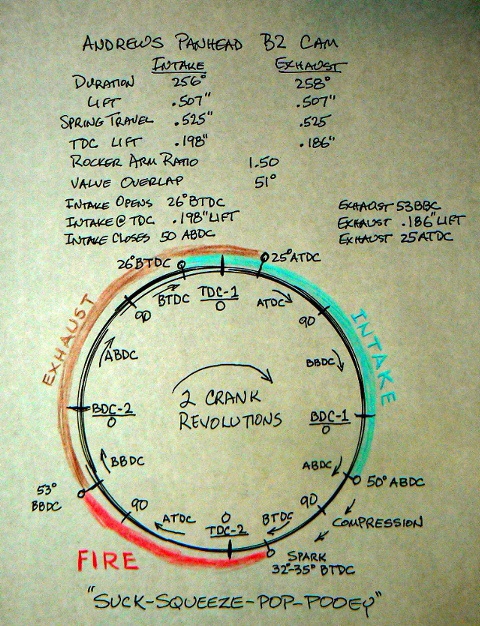 ANDREWS PANHEAD B2 CAM
INTAKE EXHAUST
DURATION 256° 258°
LIFT .507" .507"
SPRING TRAVEL .525" .525
TDC LIFT .198" .186"
ROCKER ARM RATIO 1.50
VALVE OVERLAP 51°
INTAKE OPENS 26°BTDC EXHAUST 53BBC
INTAKE@TDC .198"LIFT EXHAUST .186"LIFT
INTAKE CLOSES 50 ABDC EXHAUST 25ATDC
26°BTDC 25°ATDC
BTDC TDC-1 ATDC
0
90 90
EXHAUST INTAKE
ABDC BBDC
2 CRANK
REVOLUTIONS
BDC-2 BDC-1
0 0
BBDC ABDC
53°
BBDC
50° ABDC
90 90
ATDC 0 BTDC
TDC-2
COMPRESSION
FIRE
SPARK
32°-35° BTDC
"SUCK-SQUEEZE-POP-POOEY"